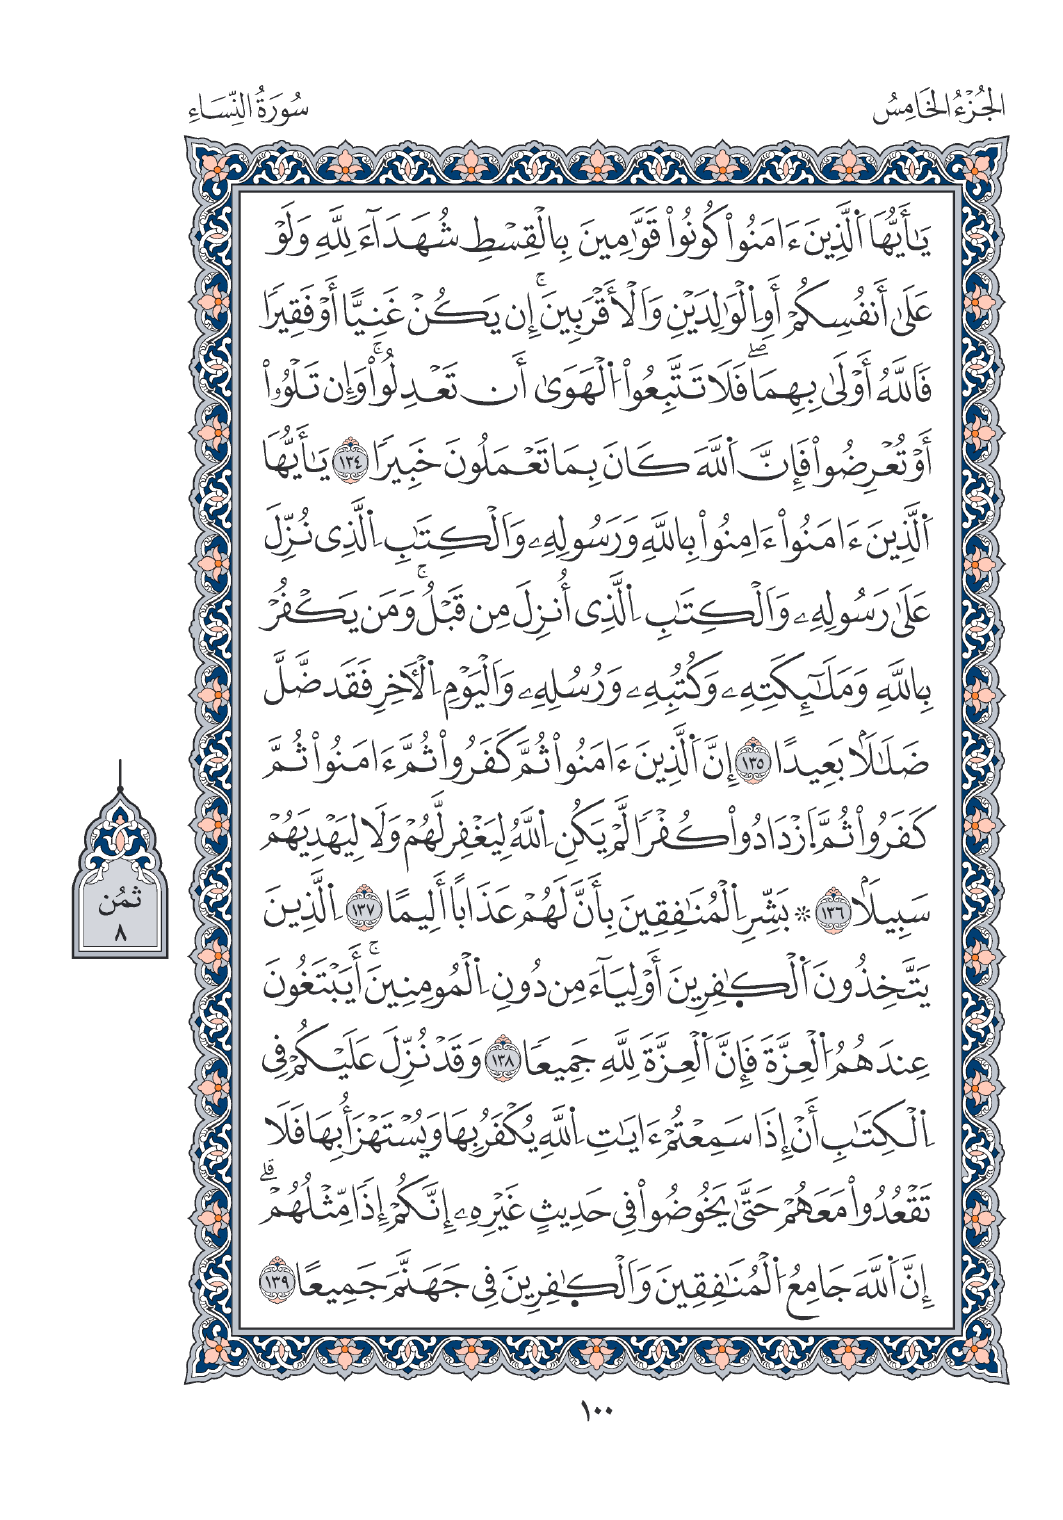 الجُزْءُ الخَامِسُ
سُورَةُ النِّسَاءِ
يَٰأَيُّهَا اَ۬لذِينَ ءَامَنُواْ كُونُواْ قَوَّٰمِينَ بِالْقِسْطِ شُهَدَآءَ لِلهِ وَلَوْ
عَلَىٰ أَنفُسِكُمْ أَوِ اِ۬لْوَٰلِدَيْنِ وَالَاقْرَبِينَۚ إِن يَكُنْ غَنِيًّا أَوْ فَقِيرٗا
فَاللَّهُ أَوْلَىٰ بِهِمَاۖ فَلَا تَتَّبِعُواْ اُ۬لْهَوَىٰ أَن تَعْدِلُواْۚ وَإِن تَلْوُۥٓاْ
أَوْ تُعْرِضُواْ فَإِنَّ اَ۬للَّهَ كَانَ بِمَا تَعْمَلُونَ خَبِيرٗا ١٣٤ يَٰأَيُّهَا
اَ۬لَّذِينَ ءَامَنُواْ ءَامِنُواْ بِاللَّهِ وَرَسُولِهِۦ وَالْكِتَٰبِ اِ۬لَّذِى نُزِّلَ
عَلَىٰ رَسُولِهِۦ وَالْكِتَٰبِ اِ۬لَّذِى أُنزِلَ مِن قَبْلُۚ وَمَن يَكْفُرْ
بِاللَّهِ وَمَلَٰٓئِكَتِهِۦ وَكُتُبِهِۦ وَرُسُلِهِۦ وَالْيَوْمِ اِ۬لْأٓخِرِ فَقَد ضَّلَّ
ضَلَٰلَاۢ بَعِيدًا ١٣٥ إِنَّ اَ۬لَّذِينَ ءَامَنُواْ ثُمَّ كَفَرُواْ ثُمَّ ءَامَنُواْ ثُمَّ
كَفَرُواْ ثُمَّ اَ۪زْدَادُواْ كُفْرٗا لَّمْ يَكُنِ اِ۬للَّهُ لِيَغْفِر لَّهُمْ وَلَا لِيَهْدِيَهُمْ
سَبِيلَاۢ ١٣٦ ۞ بَشِّرِ اِ۬لْمُنَٰفِقِينَ بِأَنَّ لَهُمْ عَذَابًا أَلِيمًا ١٣٧ اِ۬لَّذِينَ
يَتَّخِذُونَ اَ۬لْكٰٜفِرِينَ أَوْلِيَآءَ مِن دُونِ اِ۬لْمُومِنِينَۚ أَيَبْتَغُونَ
عِندَهُمُ اُ۬لْعِزَّةَ فَإِنَّ اَ۬لْعِزَّةَ لِلَّهِ جَمِيعٗا ١٣٨ وَقَدْ نُزِّلَ عَلَيْكُمْ فِى
اِ۬لْكِتَٰبِ أَنْ إِذَا سَمِعْتُمْ ءَايَٰتِ اِ۬للَّهِ يُكْفَرُ بِهَا وَيُسْتَهْزَأُ بِهَا فَلَا
تَقْعُدُواْ مَعَهُمْ حَتَّىٰ يَخُوضُواْ فِى حَدِيثٍ غَيْرِهِۦ إِنَّكُمْ إِذٗا مِّثْلُهُمْۗ
إِنَّ اَ۬للَّهَ جَامِعُ اُ۬لْمُنَٰفِقِينَ وَالْكٰٜفِرِينَ فِى جَهَنَّمَ جَمِيعًا ١٣٩
ثمُن
٨
١٠٠